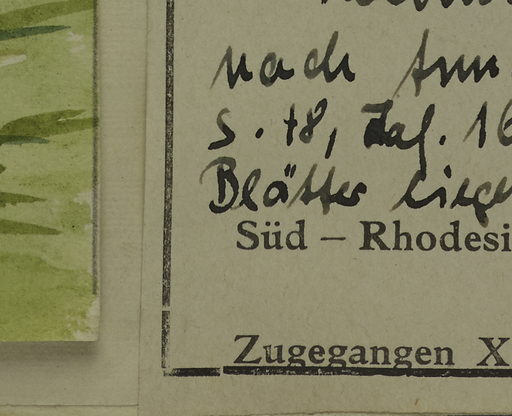 nach Ann
S. 48, Taf. 16
Blätter liege
Süd – Rhodesi
Zugegangen X